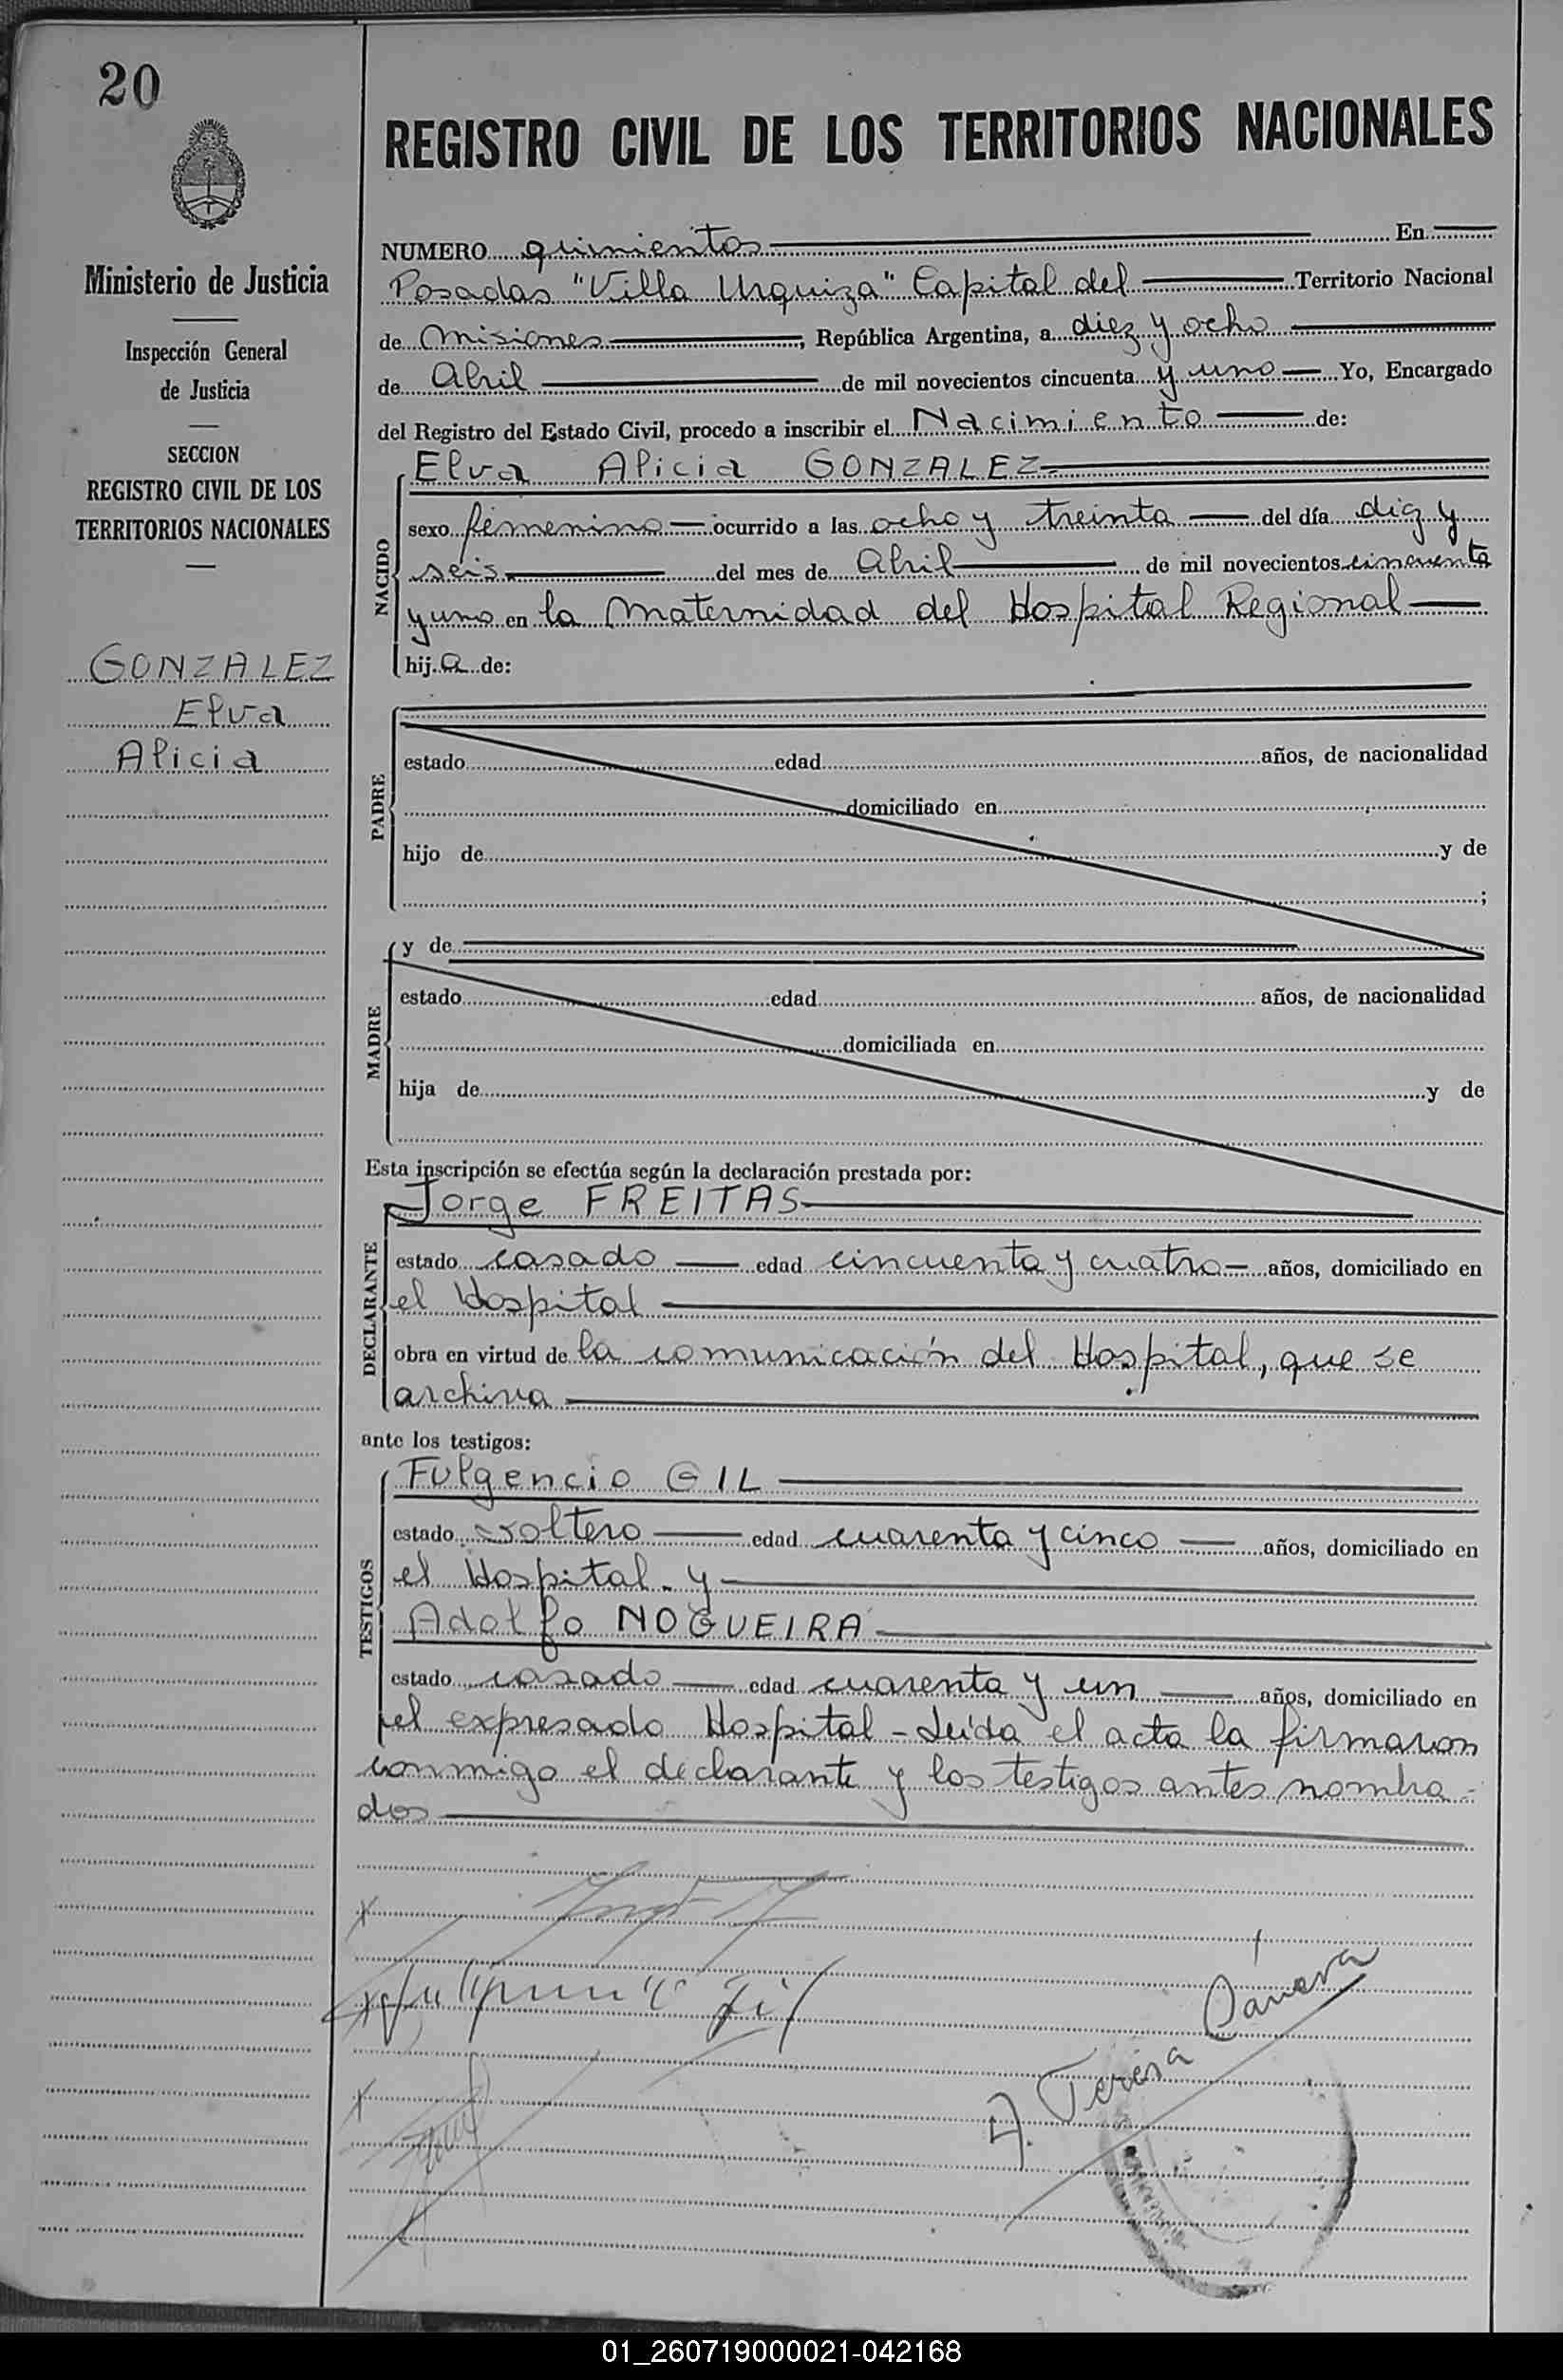 20
Ministerio de Justicia
Inspección General
de Justicia
SECCION
REGISTRO CIVIL DE LOS
TERRITORIOS NACIONALES
GONZALEZ
Elva
Alicia
REGISTRO CIVIL DE LOS TERRITORIOS NACIONALES
NUMERO quinientos En
Posadas "Villa Urquiza" Capital del Territorio Nacional
de Misiones, República Argentina, a diez y ocho
de Abril de mil novecientos cincuenta y uno Yo, Encargado
del Registro del Estado Civil, procedo a inscribir el Nacimiento de:
NACIDO
Elva Alicia GONZALEZ
sexo femenino ocurrido a las ocho y treinta del día diez y
seis del mes de Abril de mil novecientos cincuenta
y uno en la Maternidad del Hospital Regional
hija de:
PADRE
estado edad años, de nacionalidad
domiciliado en
hijo de y de
;
MADRE
y de
estado edad años, de nacionalidad
domiciliada en
hija de y de
Esta inscripción se efectúa según la declaración prestada por:
DECLARANTE
Jorge FREITAS
estado casado edad cincuenta y cuatro años, domiciliado en
el Hospital
obra en virtud de la comunicación del Hospital, que se
archiva
ante los testigos:
TESTIGOS
Fulgencio GIL
estado soltero edad cuarenta y cinco años, domiciliado en
el Hospital. y
Adolfo NOGUEIRA
estado casado edad cuarenta y un años, domiciliado en
el expresado Hospital - Leída el acta la firmaron
conmigo el declarante y los testigos antes nombra-
dos
Gil
A. Teresa Cánova
01_260719000021-042168